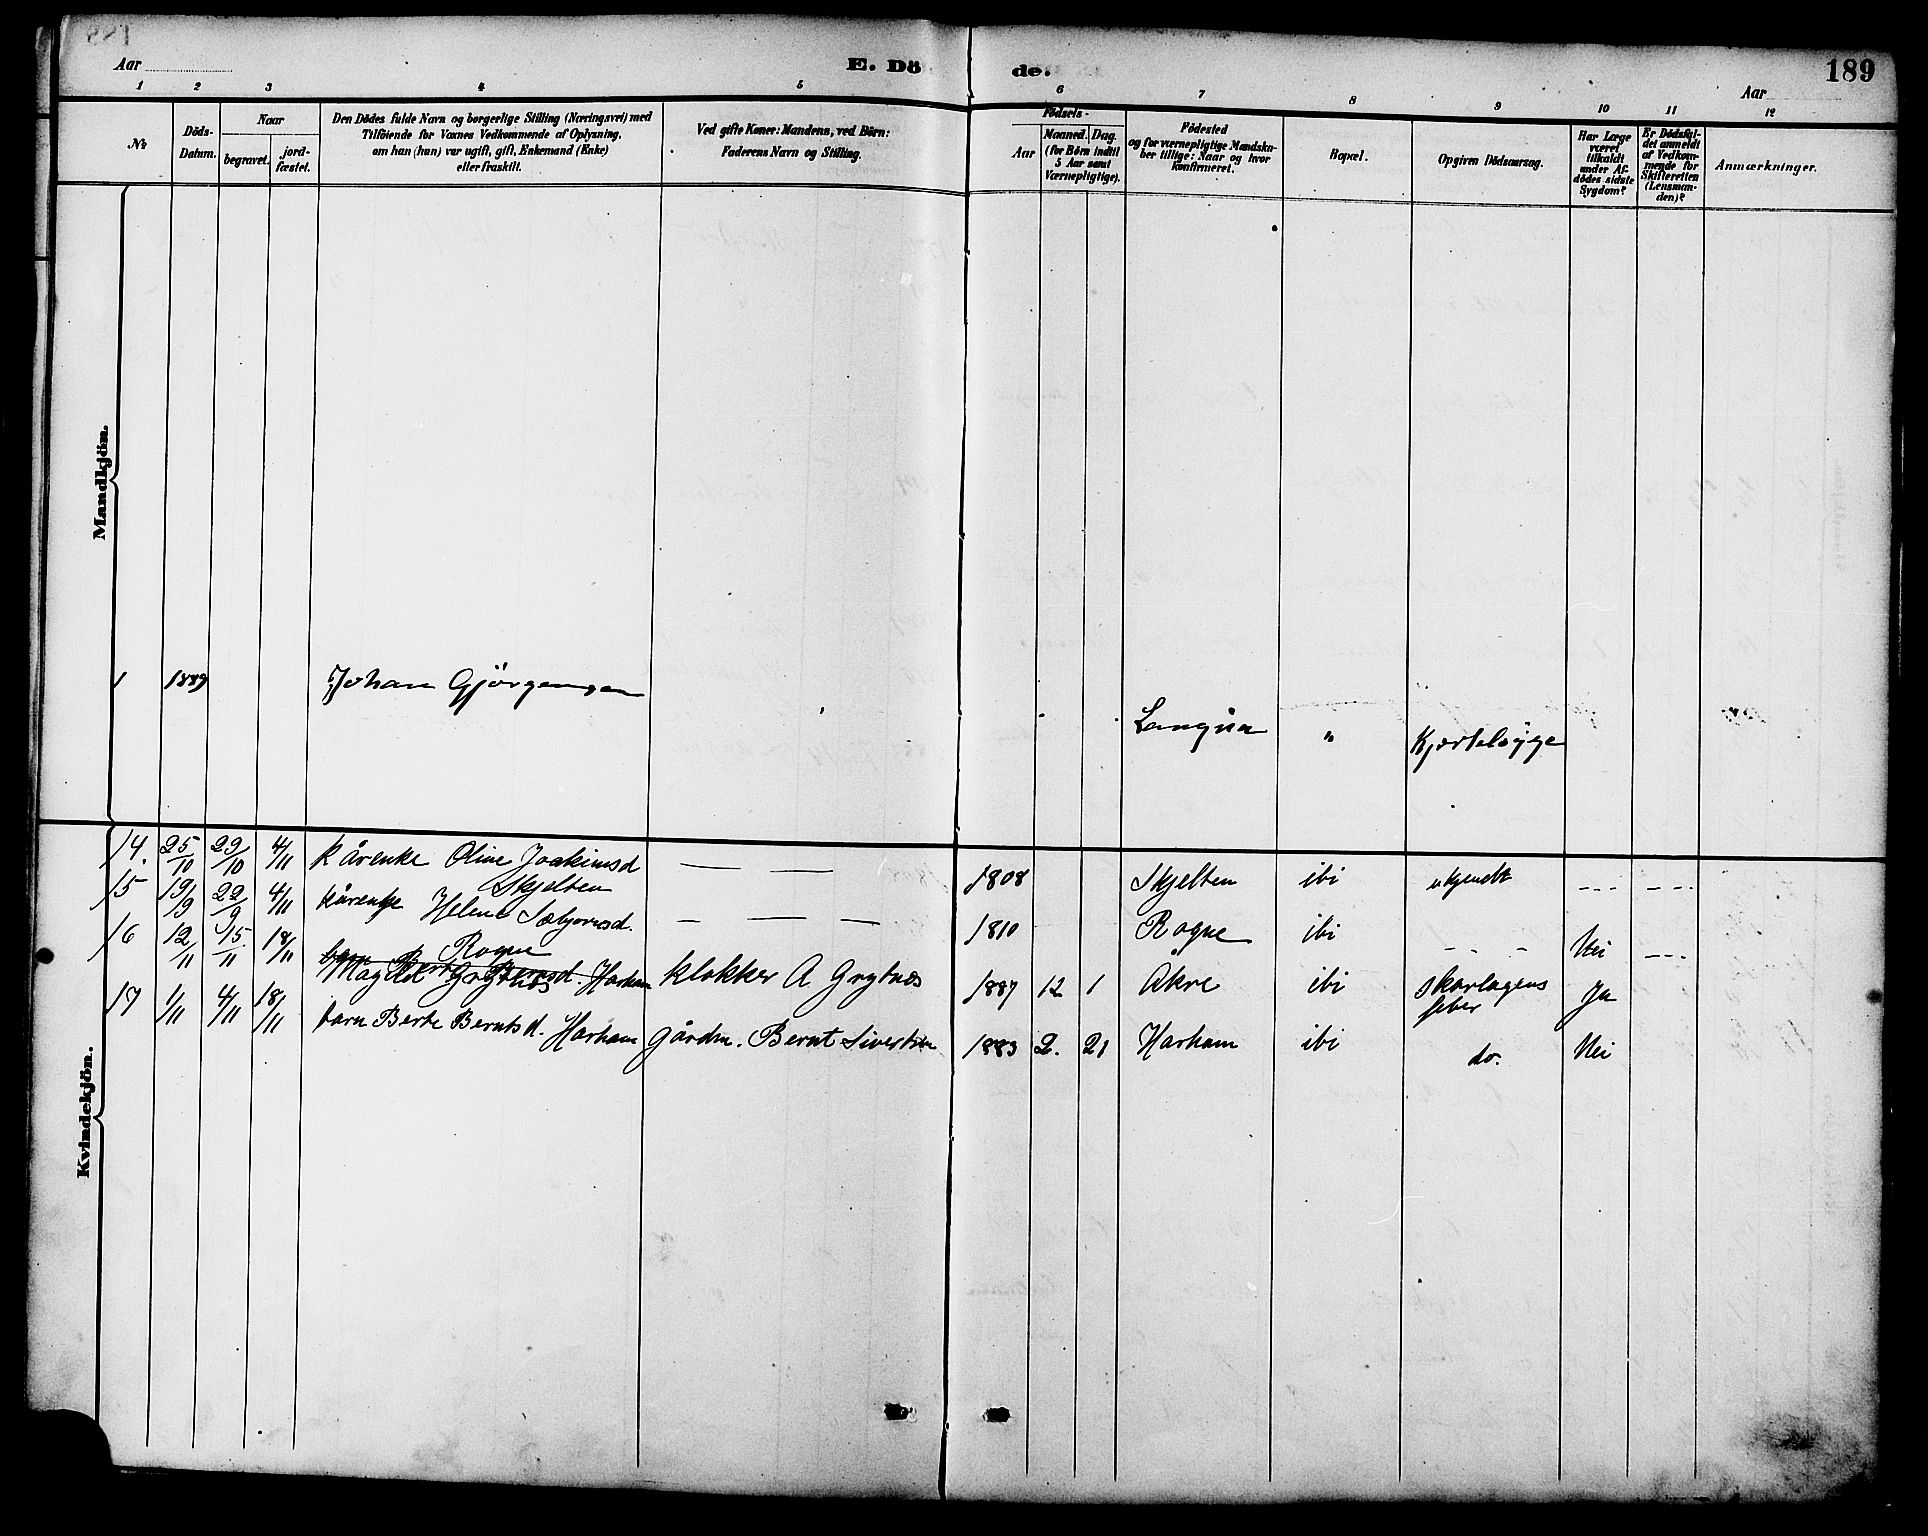 Aar
E. Dö de.
189
Aar
1 2 3 4 5 6 7 8 9 10 11 12
№
Döds-Datum.
Naar
begravet.
jord-fæstet.
Den Dödes fulde Navn og borgerlige Stilling (Næringsvei) med
Tilföiende for Voxnes Vedkommende af Oplysning,
om han (hun) var ugift, gift, Enkemand (Enke)
eller fraskilt.
Ved gifte Koner: Mandens, ved Börn:
Faderens Navn og Stilling.
Födsels-
Aar
Maaned. Dag.
(for Börn indtil
5 Aar samt
Værnepligtige).
Födested
og for værnepligtige Mandskaber tillige: Naar og hvor
konfirmeret.
Bopæl.
Opgiven Dödsaarsag.
Har Læge
været
tilkaldt
under Afdödes sidste
Sygdom?
Er Dödsfaldet anmeldt
af Vedkommende for
Skifteretten
(Lensmanden)?
Anmærkninger.
Mandkjön.
1 1889 Johan Gjörgensen
Langua " Kjortelsygge
Kvindekjön.
14. 25/10 29/10 4/11 kårenke Oline Joakimsd — — 1808 Skjelten ibi ukjendt --- ---
Skjelten
15 19/9 22/9 4/11 kårenke Helene Sæbjørnsd. — — — 1810 Rogne ibi - - - Nei ---
Rogne
16 12/11 15/11 18/11 Grytnes Harham klokker A Grytnes 1887 12 1 Åkre ibi skarlagens Ja
feber
17 1/11 4/11 18/11 barn Berte Berntsd. Harham gårdm. Bernt Sivertsen 1883 2. 21 Harham ibi do. Nei